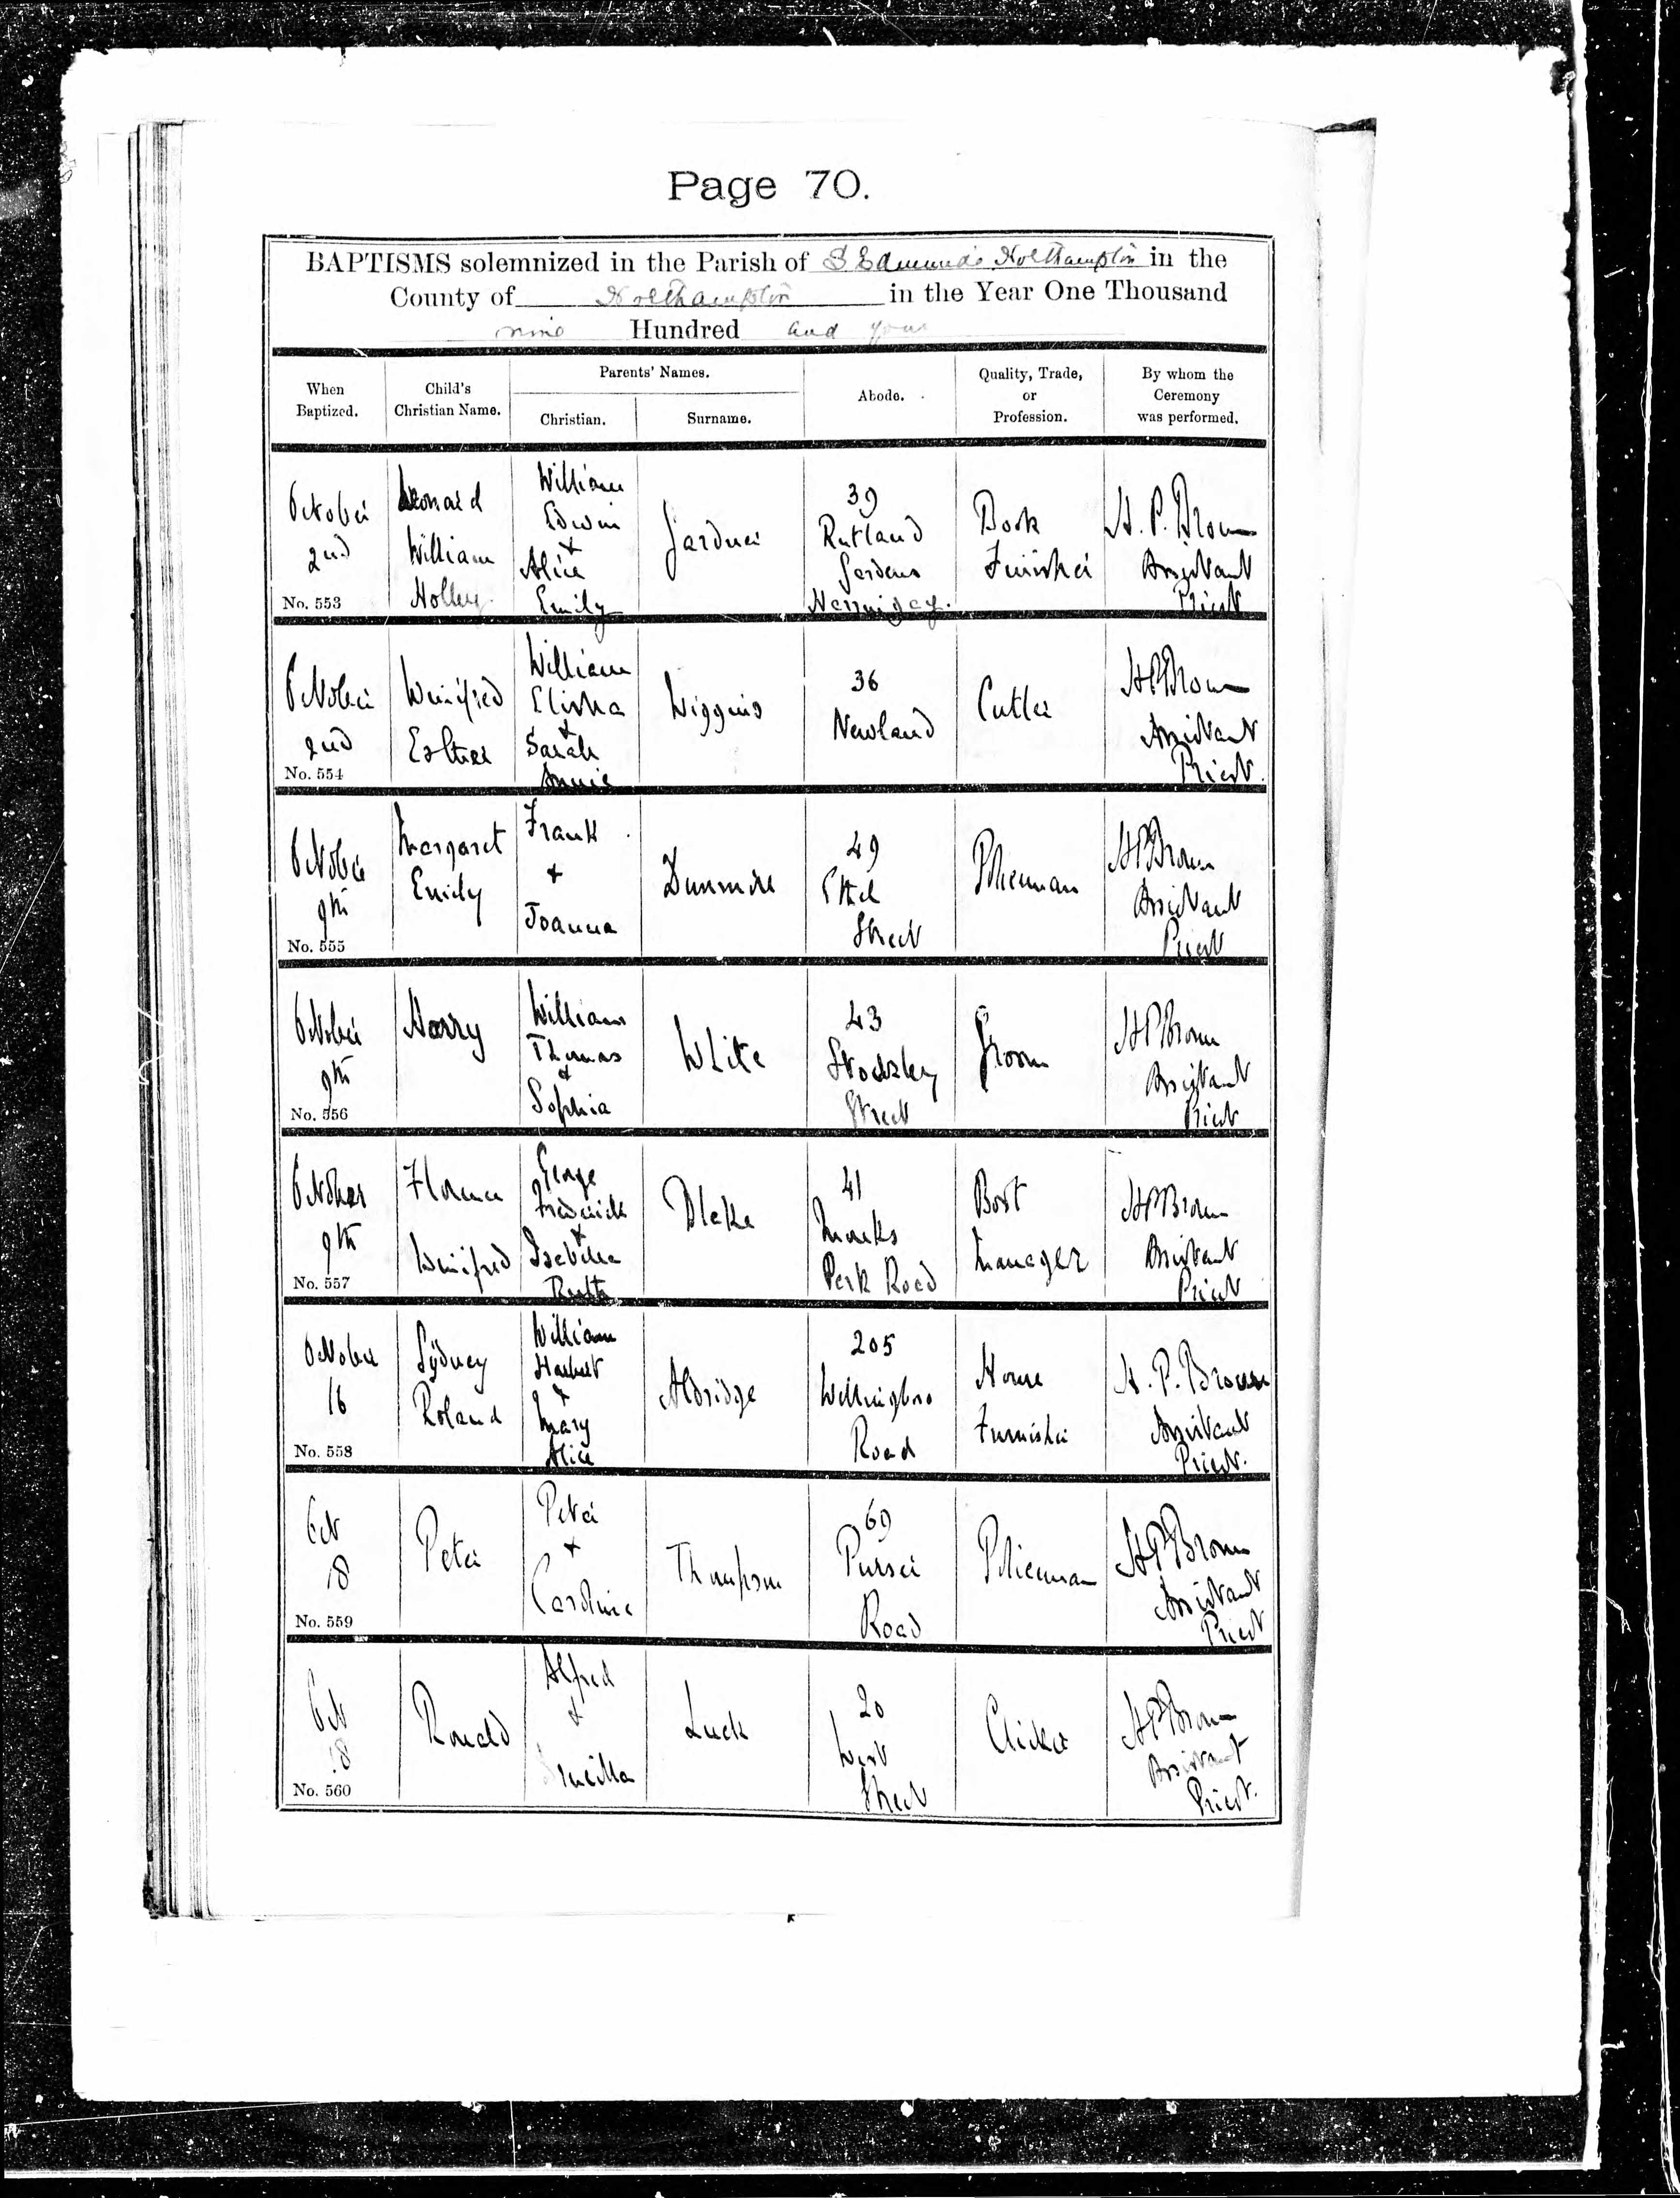 Page 70.
BAPTISMS solemnized in the Parish of S. Edmund's Northampton in the
County of Northampton in the Year One Thousand
nine Hundred and four
When Baptized. Child's Christian Name. Parents' Names. Abode. Quality, Trade, or Profession. By whom the Ceremony was performed.
Christian. Surname.
October 2nd
No. 553
Leonard William
William Edwin + Alice Emily
Gardner
39 Rutland Gardens Harringay.
Finisher
H. P. Brown Assistant Priest
October 2nd
No. 554
Winifred Esther
William Elisha + Sarah Annie
Wiggins
36 Newland
Cutler
H P Brown Assistant Priest.
October 9th
No. 555
Margaret Emily
Frank + Joanna
Dunmore
49 Ethel Street
Policeman
H P Brown Assistant Priest
October 9th
No. 556
Harry
William Thomas + Sophia
White
43 Stockley Street
Groom
H P Brown Assistant Priest
October 9th
No. 557
Florence Winifred
George Frederick + Isabella Ruth
Blake
41 Monks Park Road
Boot Manager
H P Brown Assistant Priest
October 16
No. 558
Sydney Roland
William Herbert + Mary Alice
Aldridge
205 Wellingboro Road
House Furnisher
H. P. Brown Assistant Priest.
Oct 18
No. 559
Peter
Peter + Caroline
Thompson
69 Purser Road
Policeman
H P Brown Assistant Priest
Oct 18
No. 560
Ronald
Alfred +
Luck
20 West Street
Clicker
H P Brown Assistant Priest.